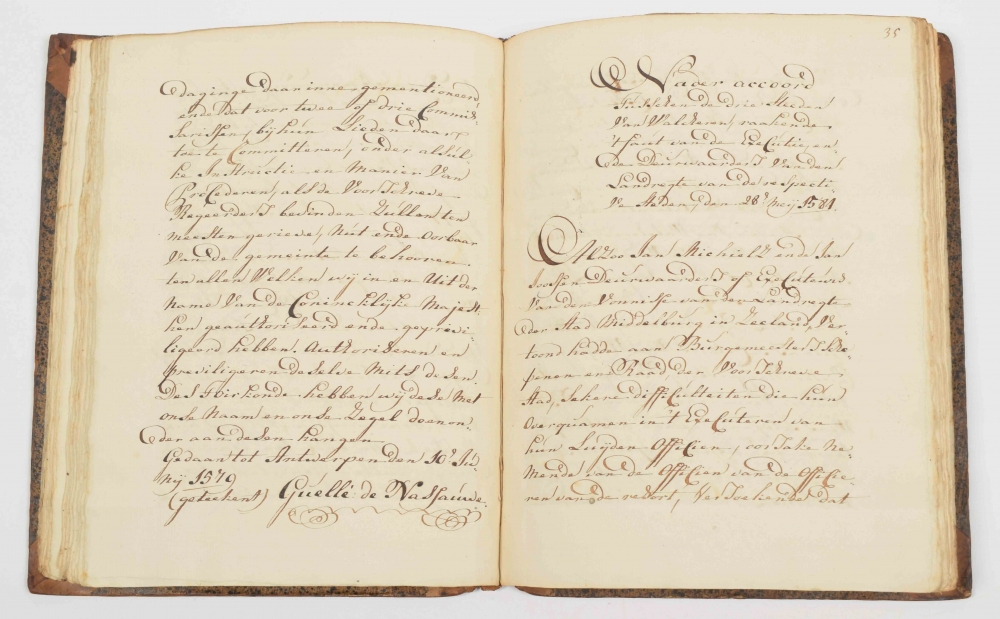 daginge daar inne gementioneerd
ende dat voor twee of drie Commis-
sarissen, bij hun Lieden daar
toe te Committeren, onder alsul-
ke Instructie en Manier van
Procederen, als de Voorschreve
Regeerders bevinden zullen ten
meesten gerieve, Nut ende oorbaar
van de gemeinte te behooren
ten allen welken wij in en uit der
name van de Conincklijke Majest
hen geauthoriseerd ende geprivi-
ligeerd hebben. Authoriseren en
priviligeren deselve Mits desen.
Des T'oirkonde hebben wij dese Met
onse Naam en onse Zegel doen on-
der aan desen hangen
Gedaan tot Antwerpen den 10e Ju-
nij 1579
(geteekent) Guelle: de Nassauwe.
35
Nader accoord
Tusschen de drie Steeden
van Walcheren, raakende
't faut van de Executie, en
de Deurwaarders van den
Landregte van de respecti-
ve Steden, den 28e Meij 1581.
Alzoo Jan Michielz ende Jan
Joossen Deurwaarders of Executeurs
van den Vonnisse van der Landregte
der Stad Middelburg in Zeeland, Ver-
toond hadde aan Burgemeesters Sche-
penen en Raad, der Voorschreve
Stad, sekere difficulteiten die hun
Overquamen in 't Executeren van
hun Luijden Officien, oorsake ne-
mende van de Officien van de Officie-
ren van de resort, Versoekende dat